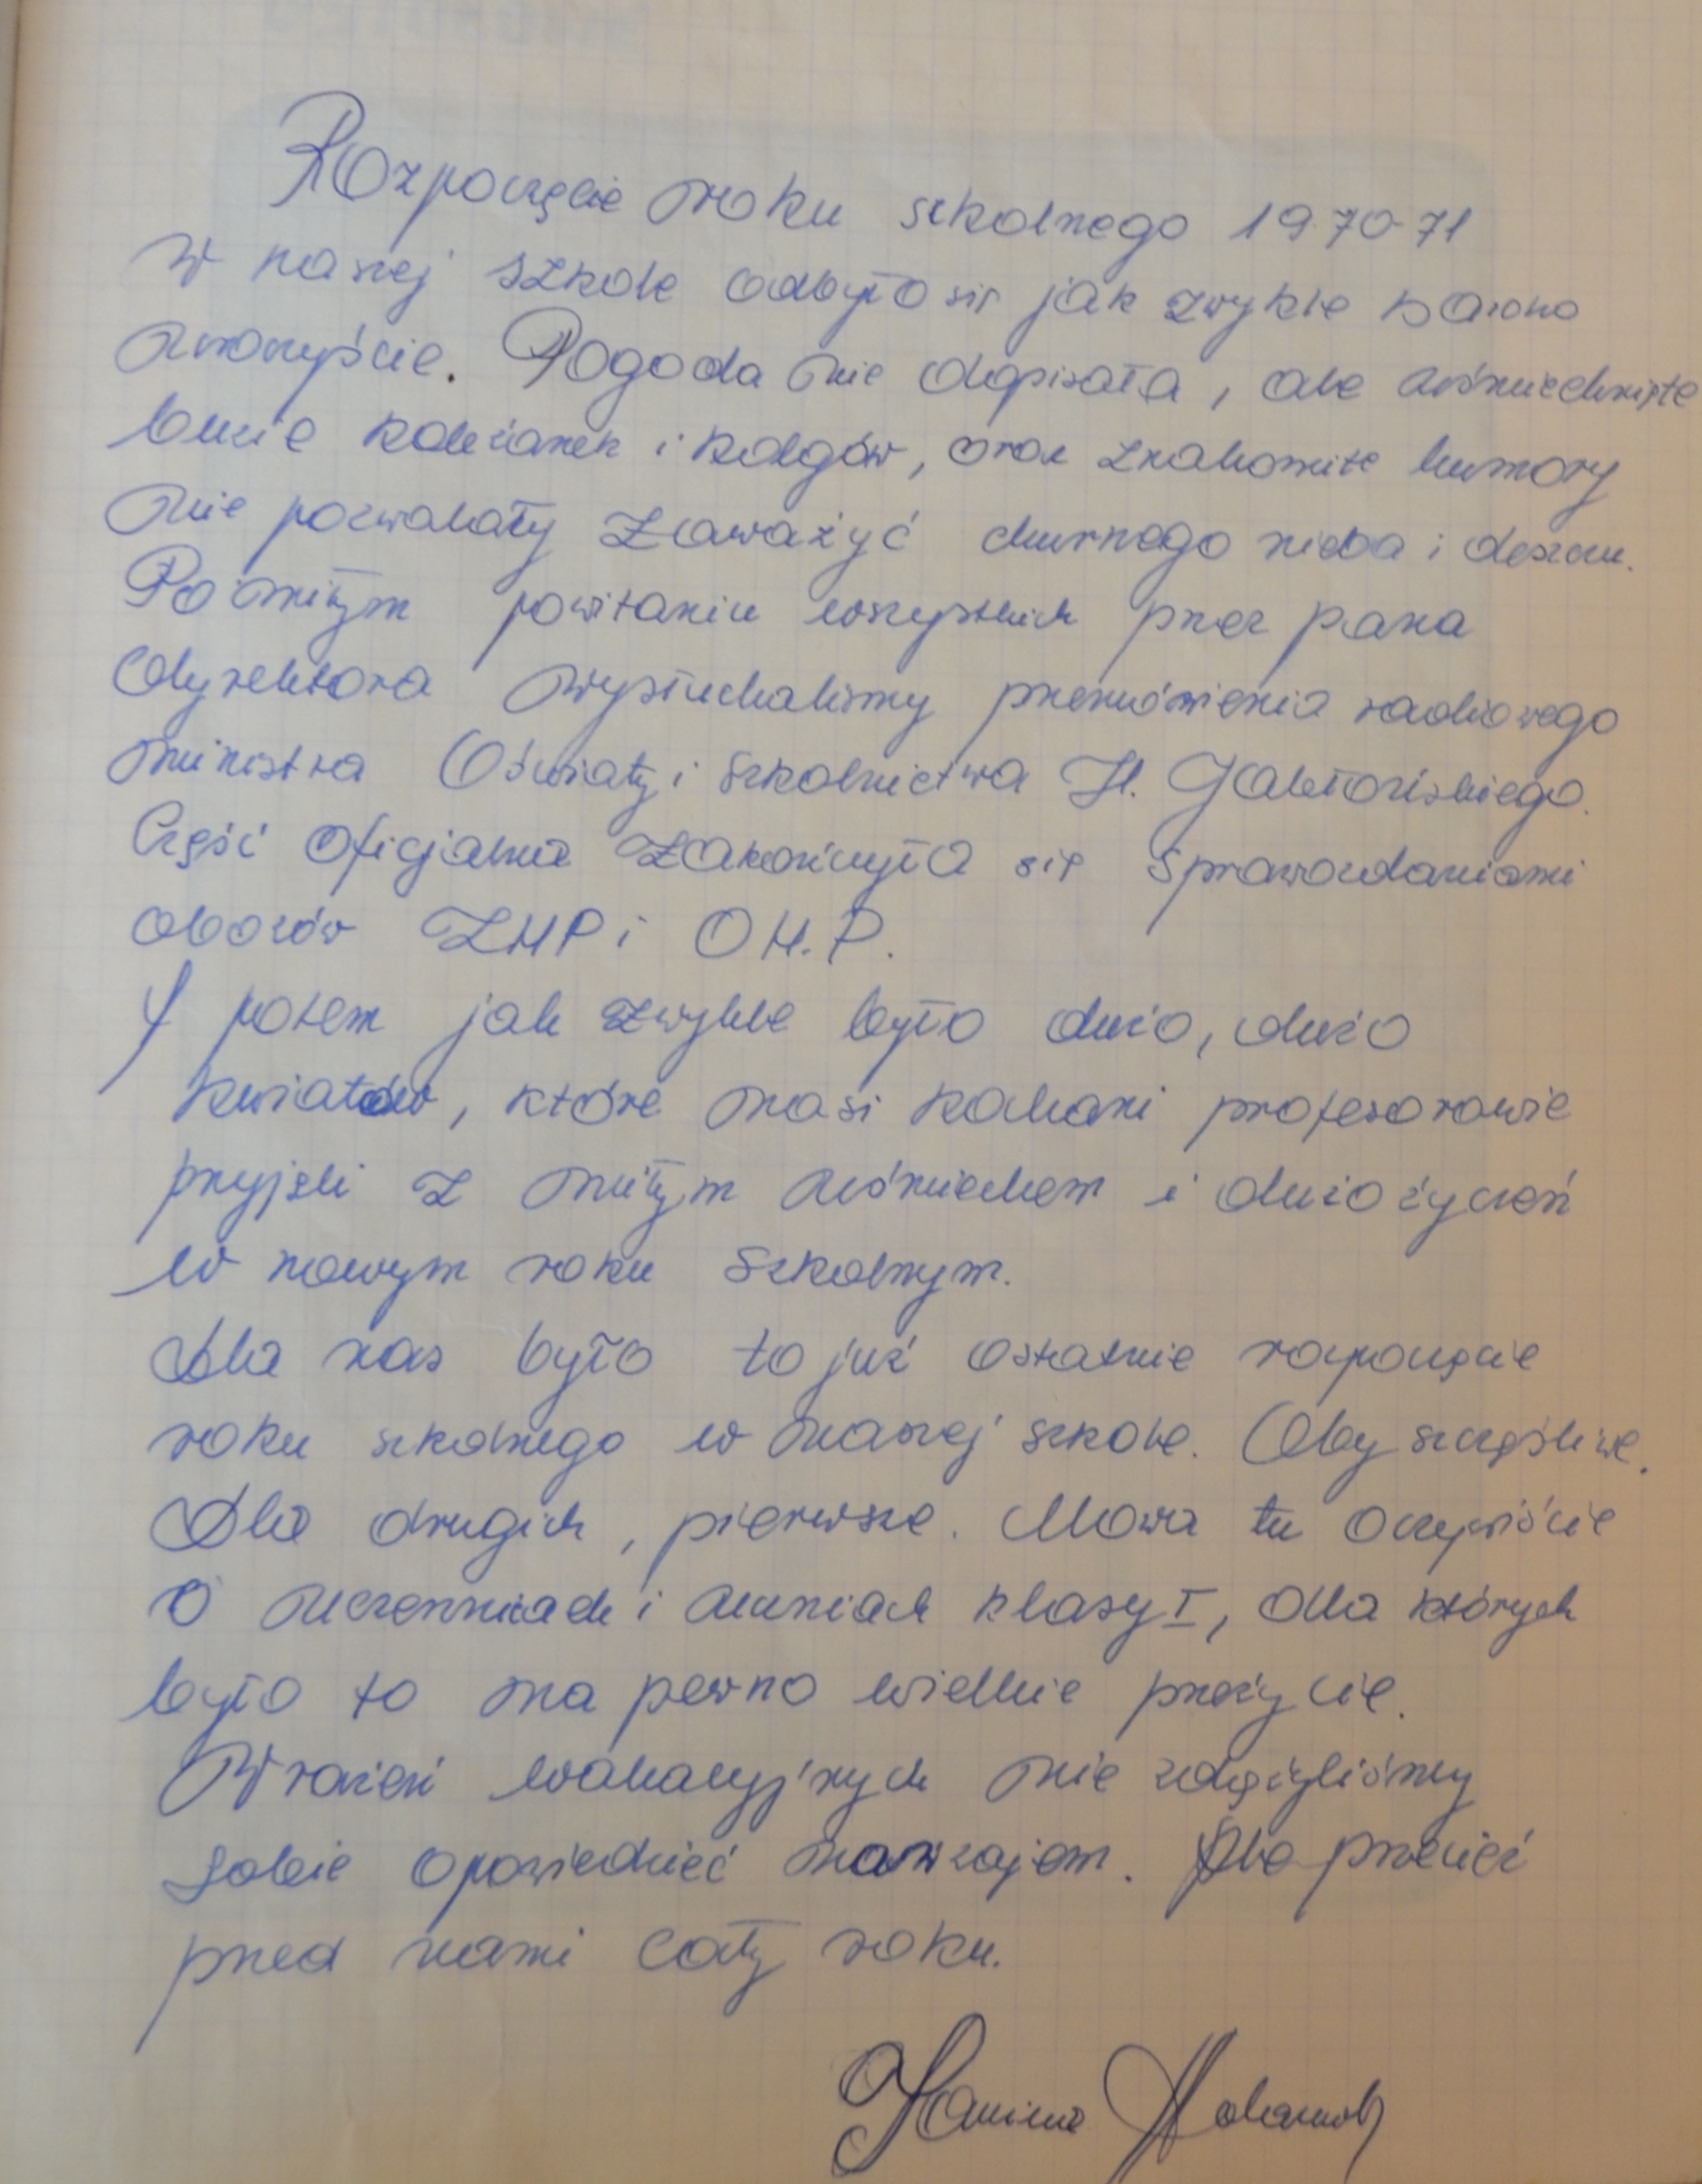 Rozpoczęcie roku szkolnego 1970-71
W naszej szkole odbyło się jak zwykle bardzo
uroczyście. Pogoda nie dopisała, ale uśmiechnięte
buzie koleżanek i kolegów, oraz znakomite humory
nie pozwalały zauważyć chmurnego nieba i deszczu.
Po miłym powitaniu wszystkich przez pana
dyrektora wysłuchaliśmy przemówienia radiowego
ministra Oświaty i Szkolnictwa H. Jabłońskiego.
Część oficjalna zakończyła się sprawozdaniami
obozów ZHP i OH.P.
I potem jak zwykle było dużo, dużo
kwiatów, które nasi kochani profesorowie
przyjęli z miłym uśmiechem i dużo życzeń
w nowym roku szkolnym.
Dla nas było to już ostatnie rozpoczęcie
roku szkolnego w naszej szkole. Oby szczęśliwe.
Dla drugich, pierwsze. Mowa tu oczywiście
o uczennicach i uczniach klasy I, dla których
było to na pewno wielkie przeżycie.
Wrażeń wakacyjnych nie zdążyliśmy
sobie opowiedzieć nawzajem. Ale przecież
przed nami cały roku.